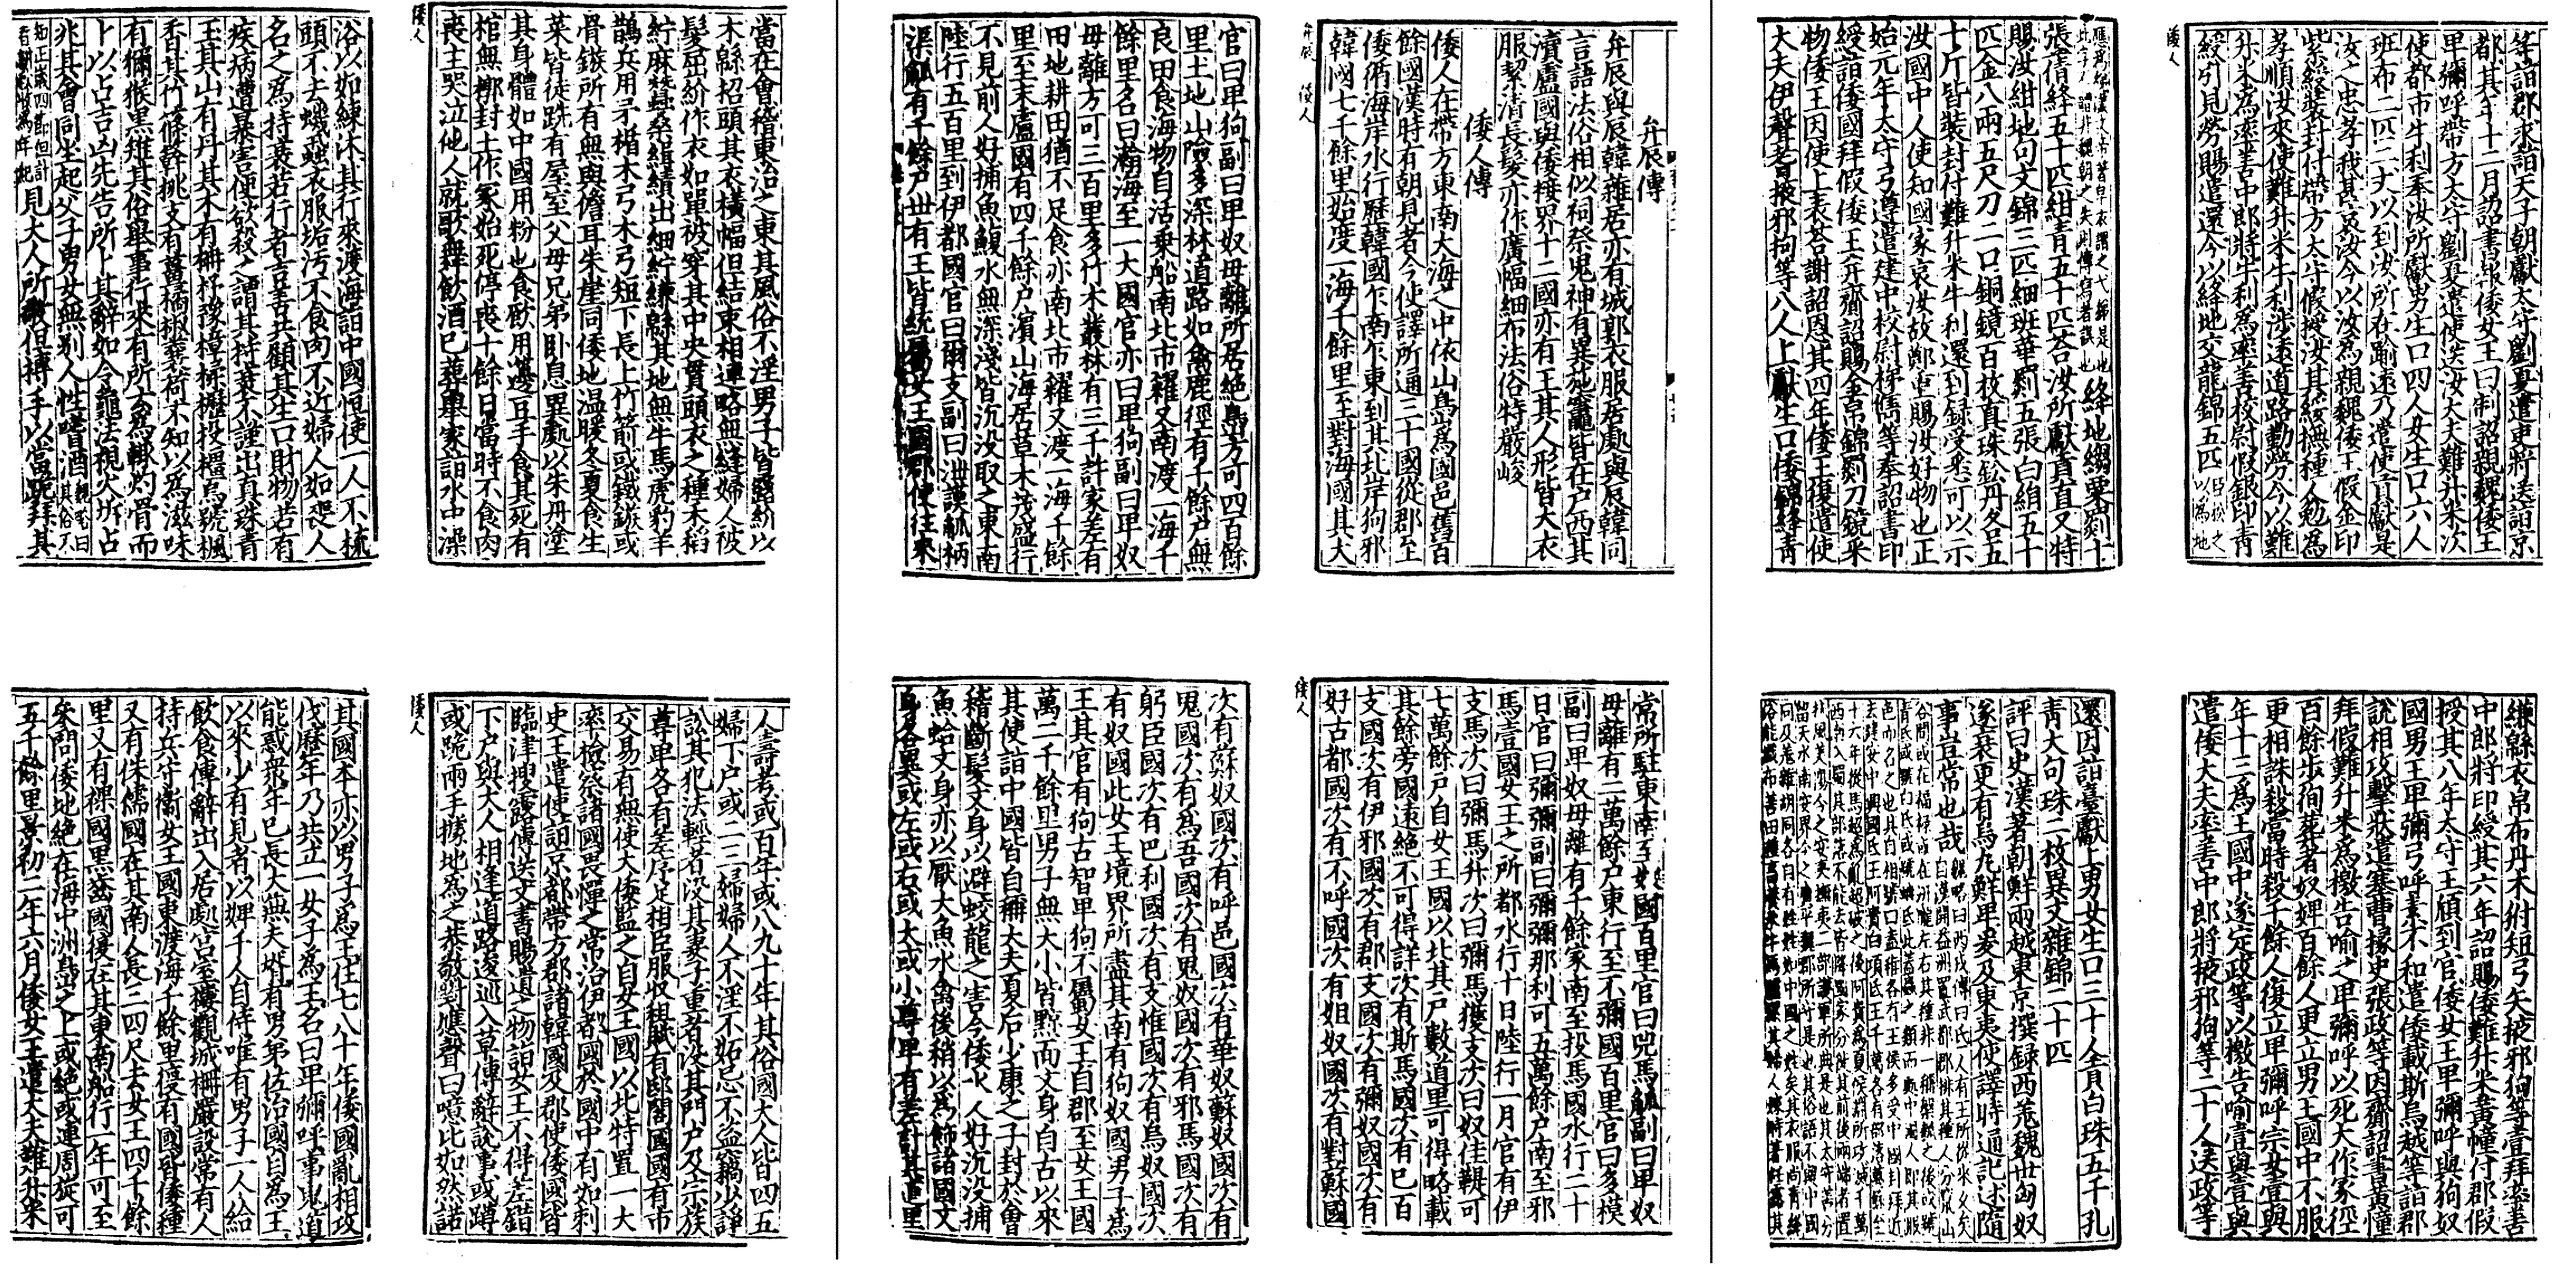 弁辰傳
弁辰與辰韓雜居亦有城郭衣服居處與辰韓同
言語法俗相似祠祭鬼神有異施竈皆在户西其
瀆盧國與倭接界十二國亦有王其人形皆大衣
服絜清長髮亦作廣幅細布法俗特嚴峻
倭人傳
倭人在帶方東南大海之中依山島為國邑舊百
餘國漢時有朝見者今使譯所通三十國從郡至
倭循海岸水行歷韓國乍南乍東到其北岸狗邪
韓國七千餘里始度一海千餘里至對海國其大
弁辰 倭人
官曰卑狗副曰卑奴母離所居絶島方可四百餘
里土地山險多深林道路如禽鹿徑有千餘户無
良田食海物自活乗船南北市糴又南渡一海千
餘里名曰瀚海至一大國官亦曰卑狗副曰卑奴
母離方可三百里多竹木叢林有三千許家差有
田地耕田猶不足食亦南北市糴又渡一海千餘
里至末盧國有四千餘户濱山海居草木茂盛行
不見前人好捕魚鰒水無深淺皆沉没取之東南
陸行五百里到伊都國官曰爾支副曰泄謨觚柄
渠觚有千餘户丗有王皆統屬女王國郡使往來
常所駐東南至奴國百里官曰兕馬觚副曰卑奴
母離有二萬餘户東行至不彌國百里官曰多模
副曰卑奴母離有千餘家南至投馬國水行二十
日官曰彌彌副曰彌彌那利可五萬餘户南至邪
馬壹國女王之所都水行十日陸行一月官有伊
支馬次曰彌馬升次曰彌馬獲支次曰奴佳鞮可
七萬餘户自女王國以北其户數道里可得略載
其餘旁國遠絶不可得詳次有斯馬國次有已百
支國次有伊邪國次有郡支國次有彌奴國次有
好古都國次有不呼國次有姐奴國次有對蘇國
倭人
次有蘇奴國次有呼邑國次有華奴蘇奴國次有
鬼國次有為吾國次有鬼奴國次有邪馬國次有
躬臣國次有巴利國次有支惟國次有烏奴國次
有奴國此女王境界所盡其南有狗奴國男子為
王其官有狗古智卑狗不屬女王自郡至女王國
萬二千餘里男子無大小皆黥面文身自古以來
其使詣中國皆自稱大夫夏后少康之子封於會
稽斷髮文身以避蛟龍之害今倭水人好沉没捕
魚蛤文身亦以厭大魚水禽後稍以為飾諸國文
身各異或左或右或大或小尊卑有差計其道里
當在會稽東治之東其風俗不淫男子皆露紒以
木緜招頭其衣橫幅但結束相連略無縫婦人被
髮屈紒作衣如單被穿其中央貫頭衣之種禾稻
紵麻蠶桑緝績出細紵縑緜其地無牛馬虎豹羊
鵲兵用矛楯木弓木弓短下長上竹箭或鐵鏃或
骨鏃所有無與儋耳朱崖同倭地温暖冬夏食生
菜皆徒跣有屋室父母兄弟卧息異處以朱丹塗
其身體如中國用粉也食飲用籩豆手食其死有
棺無槨封土作冢始死停喪十餘日當時不食肉
喪主哭泣他人就歌舞飲酒已葬舉家詣水中澡
倭人
浴以如練沐其行來渡海詣中國恒使一人不梳
頭不去蟣蝨衣服垢污不食肉不近婦人如喪人
名之為持衰若行者吉善共顧其生口財物若有
疾病遭暴害便欲殺之謂其持衰不謹出真珠青
玉其山有丹其木有柟杼豫樟楺櫪投橿烏號楓
香其竹篠簳桃支有薑橘椒蘘荷不知以為滋味
有獮猴黑雉其俗舉事行來有所云為輒灼骨而
卜以占吉凶先告所卜其辭如令龜法視火坼占
兆其會同坐起父子男女無别人性嗜酒 魏略曰其俗不
知正歲四節但計春耕秋收為年紀 見大人所敬但搏手以當跪拜其
人壽考或百年或八九十年其俗國大人皆四五
婦下户或二三婦婦人不淫不妬忌不盗竊少諍
訟其犯法輕者没其妻子重者没其門户及宗族
尊卑各有差序足相臣服收租賦有邸閣國國有市
交易有無使大倭監之自女王國以北特置一大
率檢察諸國畏憚之常治伊都國於國中有如刺
史王遣使詣京都帶方郡諸韓國及郡使倭國皆
臨津搜露傳送文書賜遺之物詣女王不得差錯
下户與大人相逢道路逡巡入草傳辭說事或蹲
或跪兩手據地為之恭敬對應聲曰噫比如然諾
倭人
其國本亦以男子為王住七八十年倭國亂相攻
伐歷年乃共立一女子為王名曰卑彌呼事鬼道
能惑衆年已長大無夫壻有男弟佐治國自為王
以來少有見者以婢千人自侍唯有男子一人給
飲食傳辭出入居處宮室樓觀城柵嚴設常有人
持兵守衞女王國東渡海千餘里復有國皆倭種
又有侏儒國在其南人長三四尺去女王四千餘
里又有裸國黑齒國復在其東南船行一年可至
參問倭地絶在海中洲島之上或絶或連周旋可
五千餘里景初二年六月倭女王遣大夫難升米
等詣郡求詣天子朝獻太守劉夏遣吏將送詣京
都其年十二月詔書報倭女王曰制詔親魏倭王
卑彌呼帶方太守劉夏遣使送汝大夫難升米次
使都市牛利奉汝所獻男生口四人女生口六人
班布二匹二丈以到汝所在踰遠乃遣使貢獻是
汝之忠孝我甚哀汝今以汝為親魏倭王假金印
紫綬裝封付帶方太守假授汝其綏撫種人勉為
孝順汝來使難升米牛利涉遠道路勤勞今以難
升米為率善中郎將牛利為率善校尉假銀印青
綬引見勞賜遣還今以絳地交龍錦五匹 臣松之以為地
倭人
應為綈漢文帝著皁衣謂之弋綈是也此字不體非魏朝之失則傳寫者誤也 絳地縐粟罽十
張蒨絳五十匹紺青五十匹荅汝所獻貢直又特
賜汝紺地句文錦三匹細班華罽五張白絹五十
匹金八兩五尺刀二口銅鏡百枚真珠鈆丹各五
十斤皆裝封付難升米牛利還到録受悉可以示
汝國中人使知國家哀汝故鄭重賜汝好物也正
始元年太守弓遵遣建中校尉梯儁等奉詔書印
綬詣倭國拜假倭王并齎詔賜金帛錦罽刀鏡采
物倭王因使上表荅謝詔恩其四年倭王復遣使
大夫伊聲耆掖邪狗等八人上獻生口倭錦絳青
縑緜衣帛布丹木𤝔短弓矢掖邪狗等壹拜率善
中郎將印綬其六年詔賜倭難升米黄幢付郡假
授其八年太守王頎到官倭女王卑彌呼與狗奴
國男王卑彌弓呼素不和遣倭載斯烏越等詣郡
說相攻擊狀遣塞曹掾史張政等因齎詔書黄幢
拜假難升米為檄告喻之卑彌呼以死大作冢徑
百餘步狥葬者奴婢百餘人更立男王國中不服
更相誅殺當時殺千餘人復立卑彌呼宗女壹與
年十三為王國中遂定政等以檄告喻壹與壹與
遣倭大夫率善中郎將掖邪狗等二十人送政等
還因詣臺獻上男女生口三十人貢白珠五千孔
青大句珠二枚異文雜錦二十匹
評曰史漢著朝鮮兩越東京撰録西羌魏世匈奴
遂衰更有烏丸鮮卑爰及東夷使譯時通記述隨
事豈常也哉